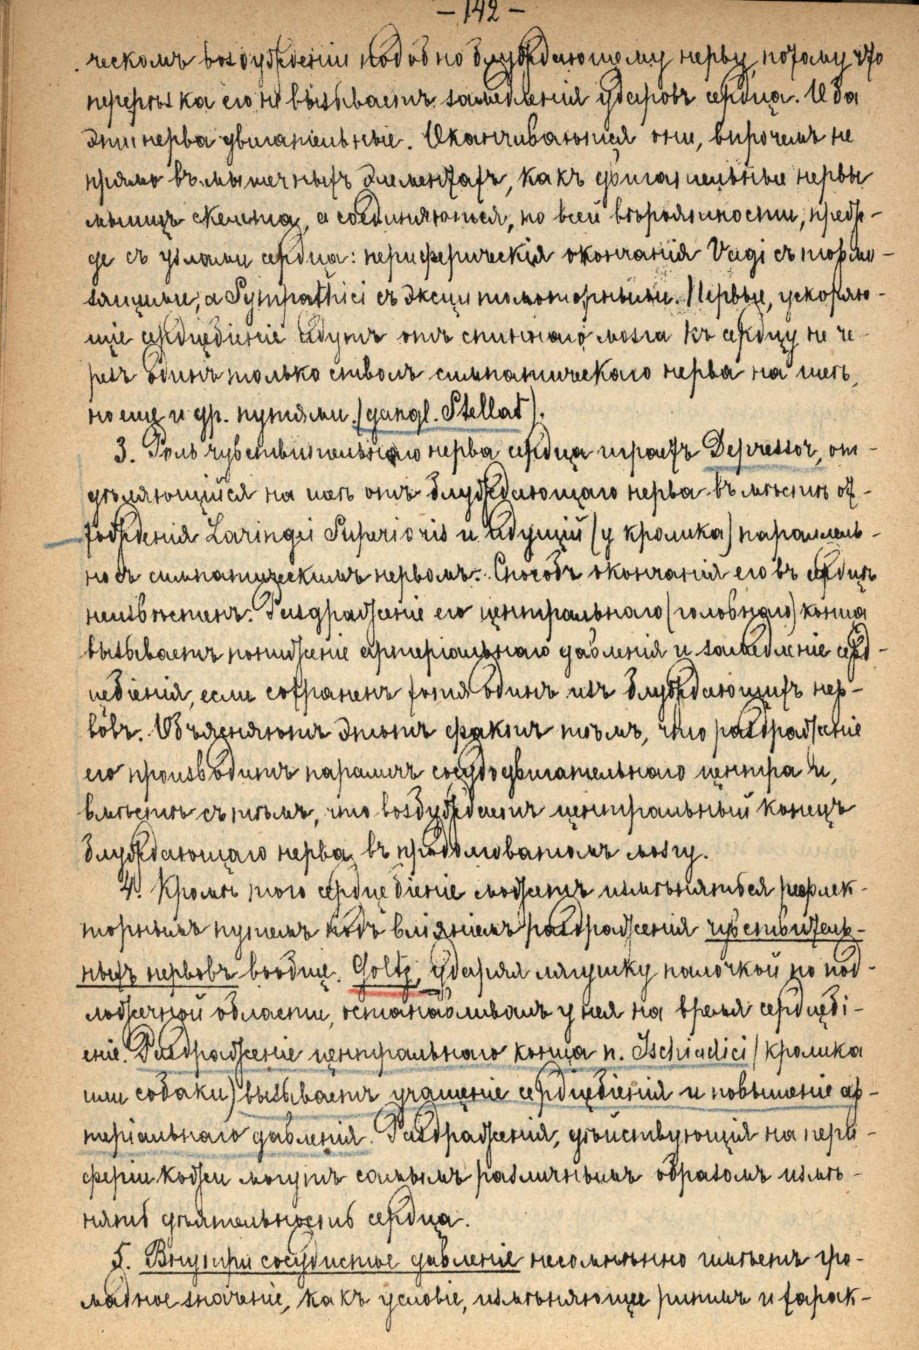 — 142 —
ческомъ возбужденіи подобно блуждающему нерву, потому что
перерѣзка его не вызываетъ замедленія ударовъ сердца. Оба
эти нерва двигательные. Оканчиваются они, впрочемъ не
прямо въ мышечныхъ элементахъ, какъ двигательные нервы
мышцъ скелета, а соединяются, по всей вѣроятности, преж-
де съ узлами сердца: периферическія окончанія Vagi съ тормо-
зящими, а Sympathici съ эксцитомоторными. Нервы, ускоряю-
щіе сердцебіеніе идутъ отъ спиннаго мозга къ сердцу не че-
резъ одинъ только стволъ симпатическаго нерва на шеѣ,
но еще и др. путями (gangl. Stellat).
3. Роль чувствительнаго нерва сердца играетъ Depressor, от-
дѣляющійся на шеѣ отъ блуждающаго нерва въ мѣстѣ от-
хожденія Laringei Superioris и идущій (у кролика) параллель-
но съ симпатическимъ нервомъ. Способъ окончанія его въ сердцѣ
неизвѣстенъ. Раздраженіе его центральнаго (головнаго) конца
вызываетъ пониженіе артеріальнаго давленія и замедленіе серд-
цебіенія, если сохраненъ хотя одинъ изъ блуждающихъ нер-
вовъ. Объясняютъ этотъ фактъ тѣмъ, что раздраженіе
его производитъ параличъ сосудодвигательнаго центра и,
вмѣстѣ съ тѣмъ, что возбуждаетъ центральный конецъ
блуждающаго нерва въ продолговатомъ мозгу.
4. Кромѣ того сердцебіеніе можетъ измѣняться рефлек-
торнымъ путемъ подъ вліяніемъ раздраженія чувствитель-
ныхъ нервовъ вообще. Goltz, ударяя лягушку палочкой по под-
ложечной области, останавливалъ у нея на время сердцебі-
еніе. Раздраженіе центральнаго конца n. Ischiadici (кролика
или собаки) вызываетъ учащеніе сердцебіенія и повышеніе ар-
теріальнаго давленія. Раздраженія, дѣйствующія на пери-
феріи кожи могутъ самымъ различнымъ образомъ измѣ-
нять дѣятельность сердца.
5. Внутри сосудистое давленіе несомнѣнно имѣетъ гро-
мадное значеніе, какъ условіе, измѣняющее ритмъ и харак-